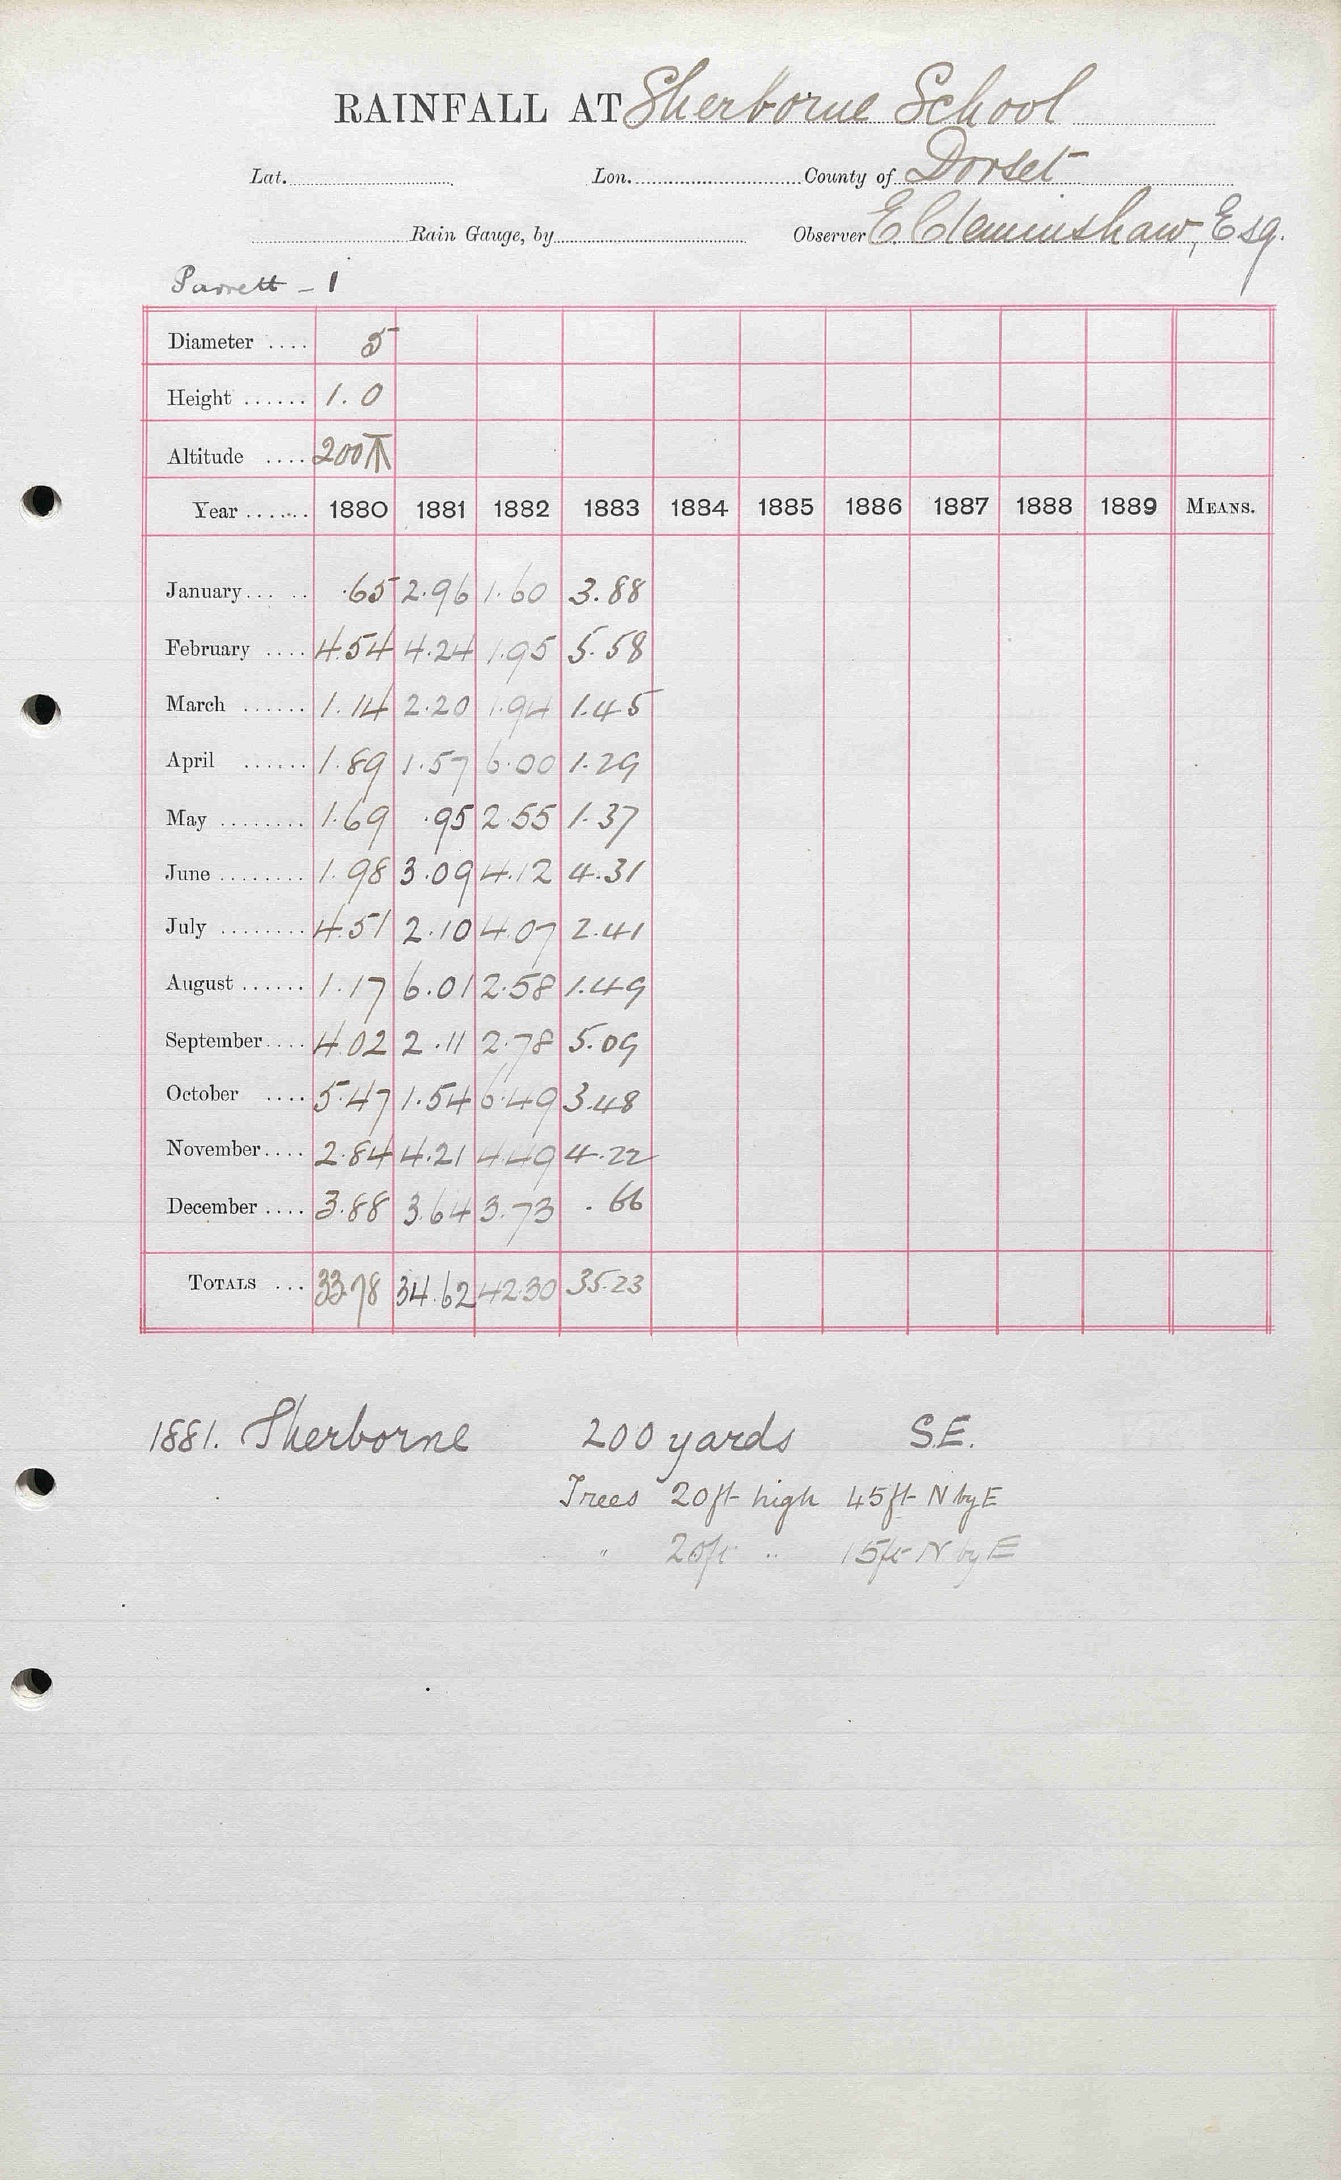 RAINFALL AT Sherborne School
Lat. Lon. County of Dorset
Rain Gauge, by Observer E. Cleminshaw, Esq.
Parrett - 1
Diameter .... 5
Height ...... 1.0
Altitude .... 200
Year ...... 1880 1881 1882 1883 1884 1885 1886 1887 1888 1889 MEANS.
January... .. .65 2.96 1.60 3.88
February .... 4.54 4.24 1.95 5.58
March ...... 1.14 2.20 1.94 1.45
April ...... 1.89 1.57 6.00 1.29
May ........ 1.69 .95 2.55 1.37
June ........ 1.98 3.09 4.12 4.31
July ........ 4.51 2.10 4.07 2.41
August ...... 1.17 6.01 2.58 1.49
September.... 4.02 2.11 2.78 5.09
October .... 5.47 1.54 6.49 3.48
November.... 2.84 4.21 4.49 4.22
December .... 3.88 3.64 3.73 .66
TOTALS ... 33.78 34.62 42.30 35.23
1881. Sherborne 200 yards S.E.
Trees 20ft high 45ft N by E
" 20ft " 15ft N by E